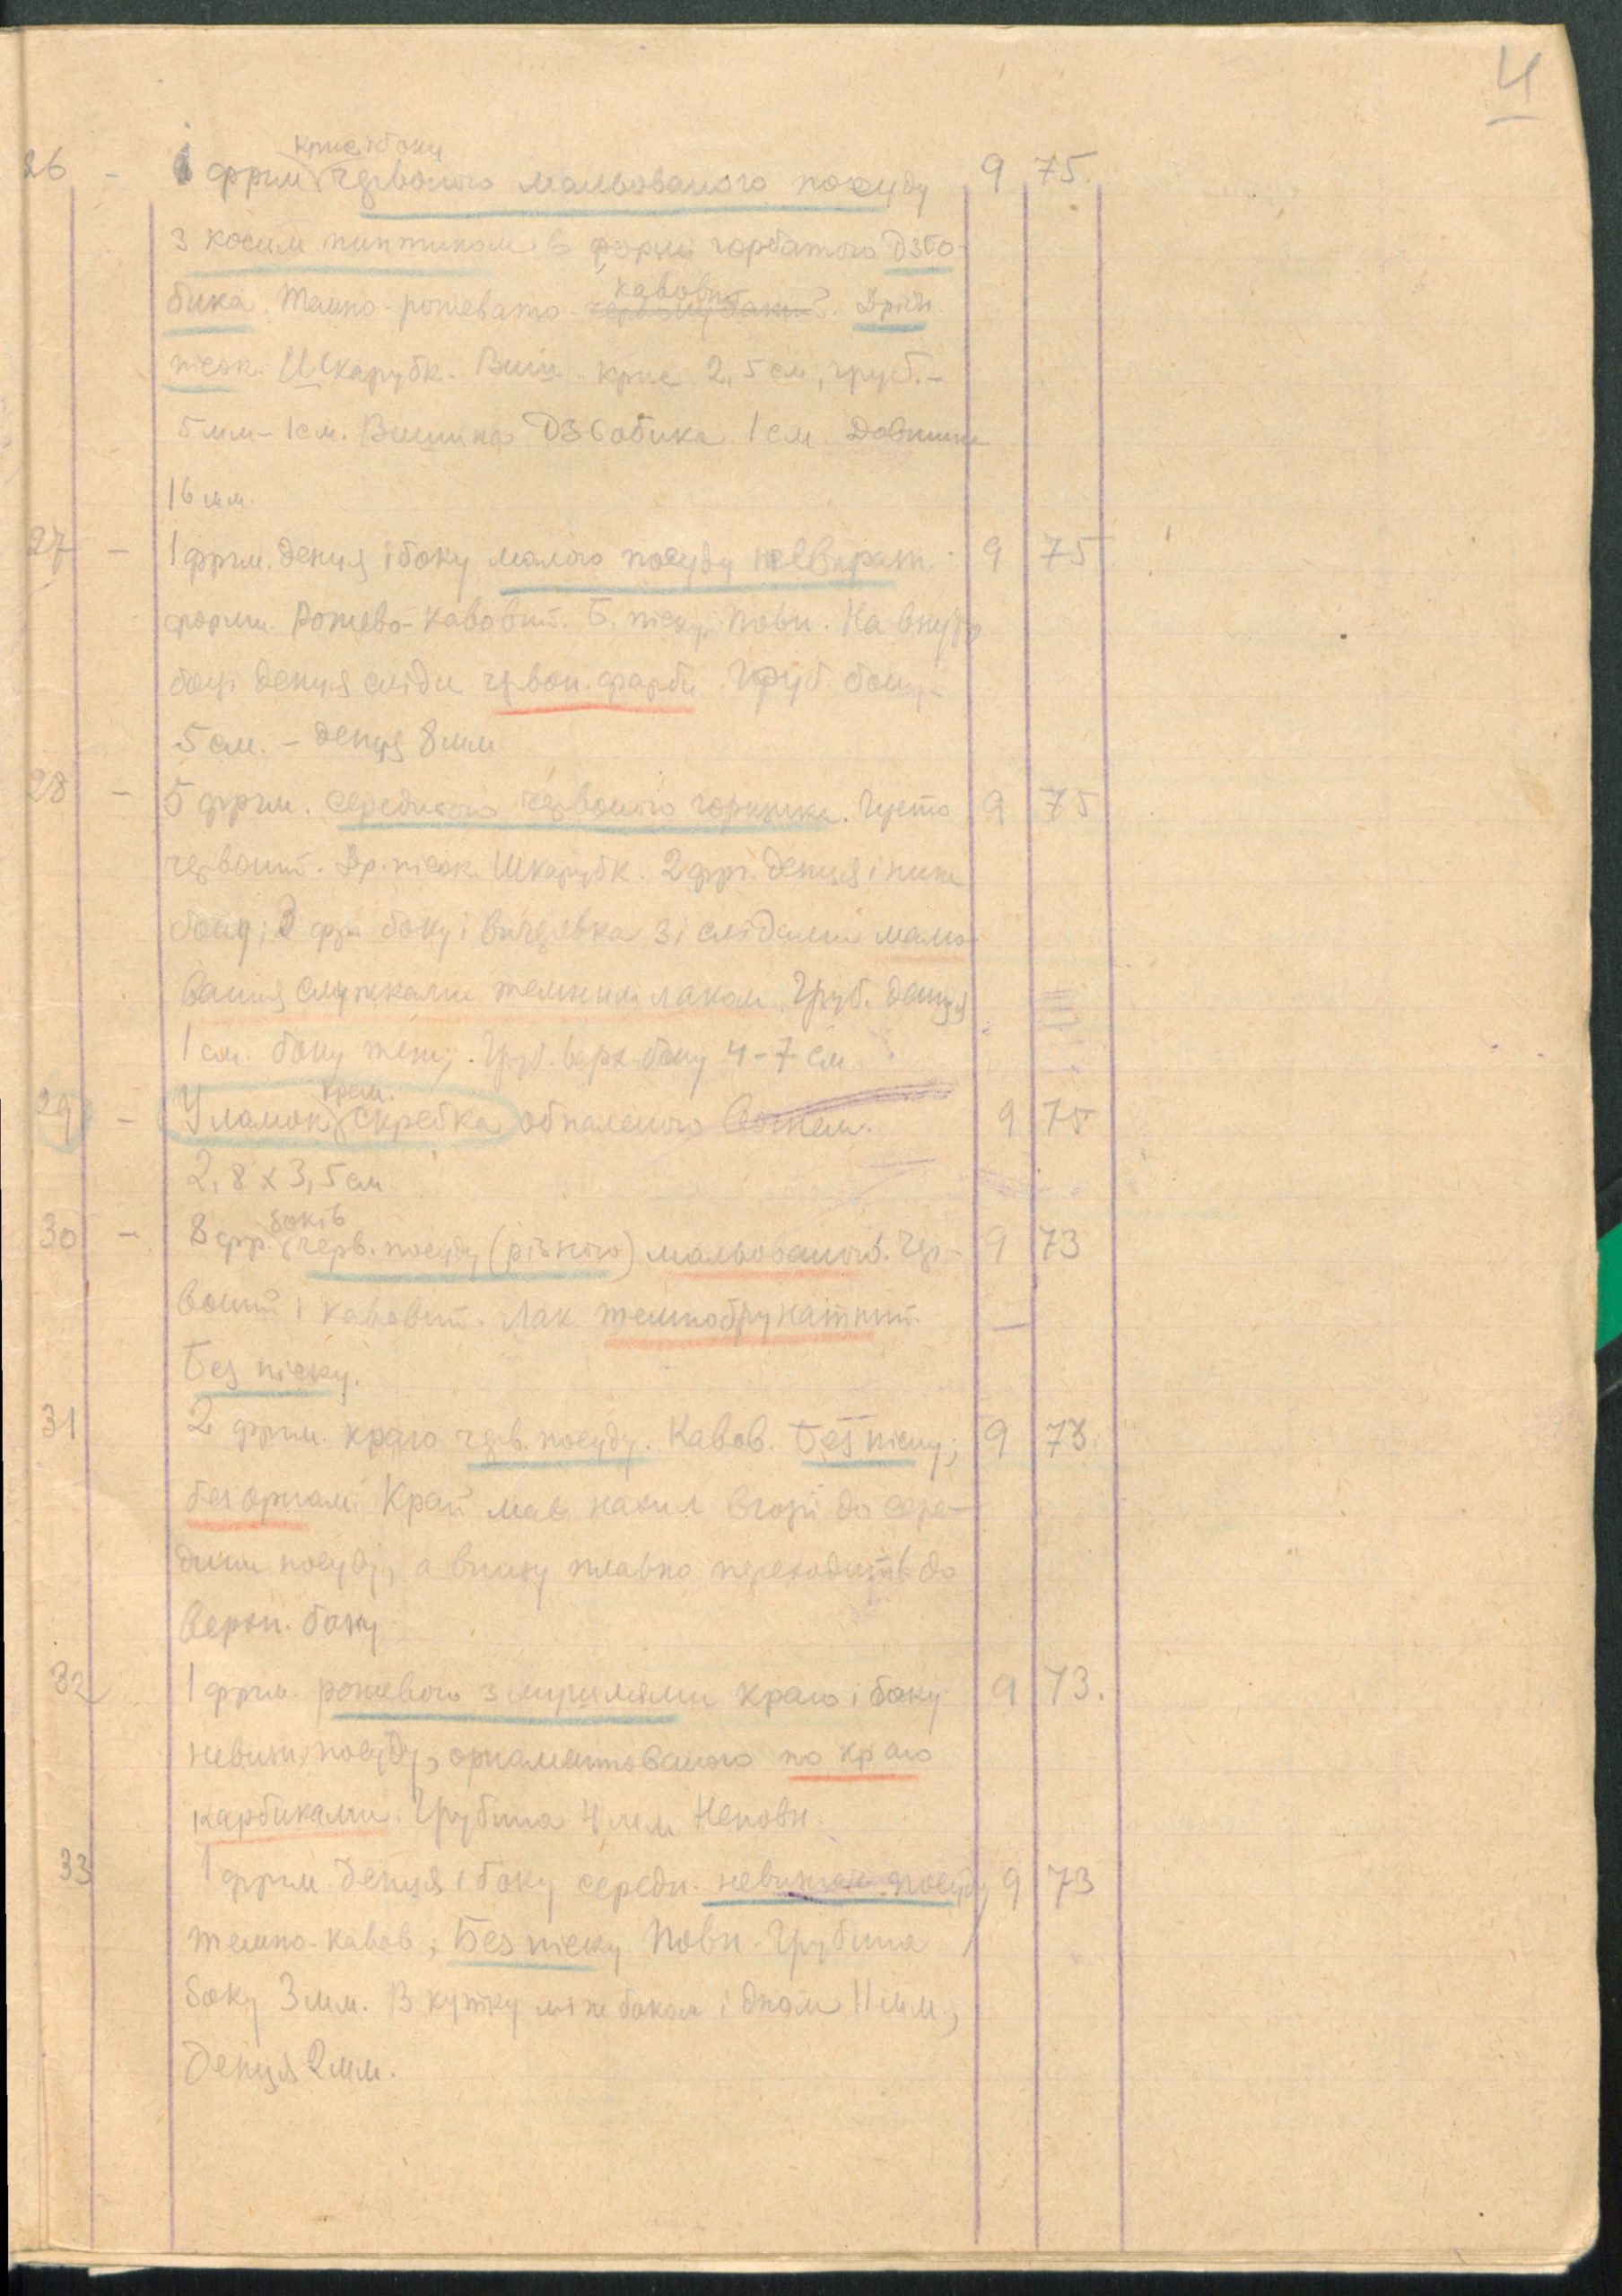 4
крис і боку
26 - 1 фргм. червоного мальованого посуду 9 75.
з косим пиптиком в формі горбатого дзьо-
бика. Темно-рожевато- кавовий. Дрібн.
пісок. Шкарубк. Виш. крис 2,5 см, груб. -
5 мм - 1 см. Вишина дзьобика 1 см. Довжина
16 мм.
27 - 1 фргм. денця і боку малого посуду невираж. 9 75
форми. Рожево-кавовий. Б. піску. Повн. На внутр.
боці денця сліди червон. фарби. Груб. боку
5 см. - денця 8 мм
28 - 5 фргм. середнього червоного горщика. Густо 9 75
червоний. Др. пісок. Шкарубк. 2 фрг. денця і низ
боку; 3 фр. боку і зі слідами мальо-
вання смужками темним лаком. Груб. денця
1 см. боку теж; Груб. верх. боку 4-7 см
крем.
29 - Уламок скребка обпаленого вогнем. 9 75
2,8 x 3,5 см
боків
30 - 8 фр. черв. посуду (різного) мальованого. Чер- 9 73
воний і кавовий. Лак темнобрунатний.
Без піску.
31 2 фргм. краю черв. посуду. Кавов. Без піску; 9 73
без орнам. Край мав нахил вгорі до сере-
дини посуду, а внизу плавно переходить до
верхн. боку
32 1 фргм. рожевого краю і боку 9 73.
невизн. посуду, орнаментованого по краю
карбиками. Грубина 4 мм Неповн.
33 1 фргм. денця і боку середн. невизнач. посуду 9 73
темно-кавов., Без піску Повн. Грубина
боку 3 мм. В кутку між боком і дном 11 мм.,
Денця 2 мм.